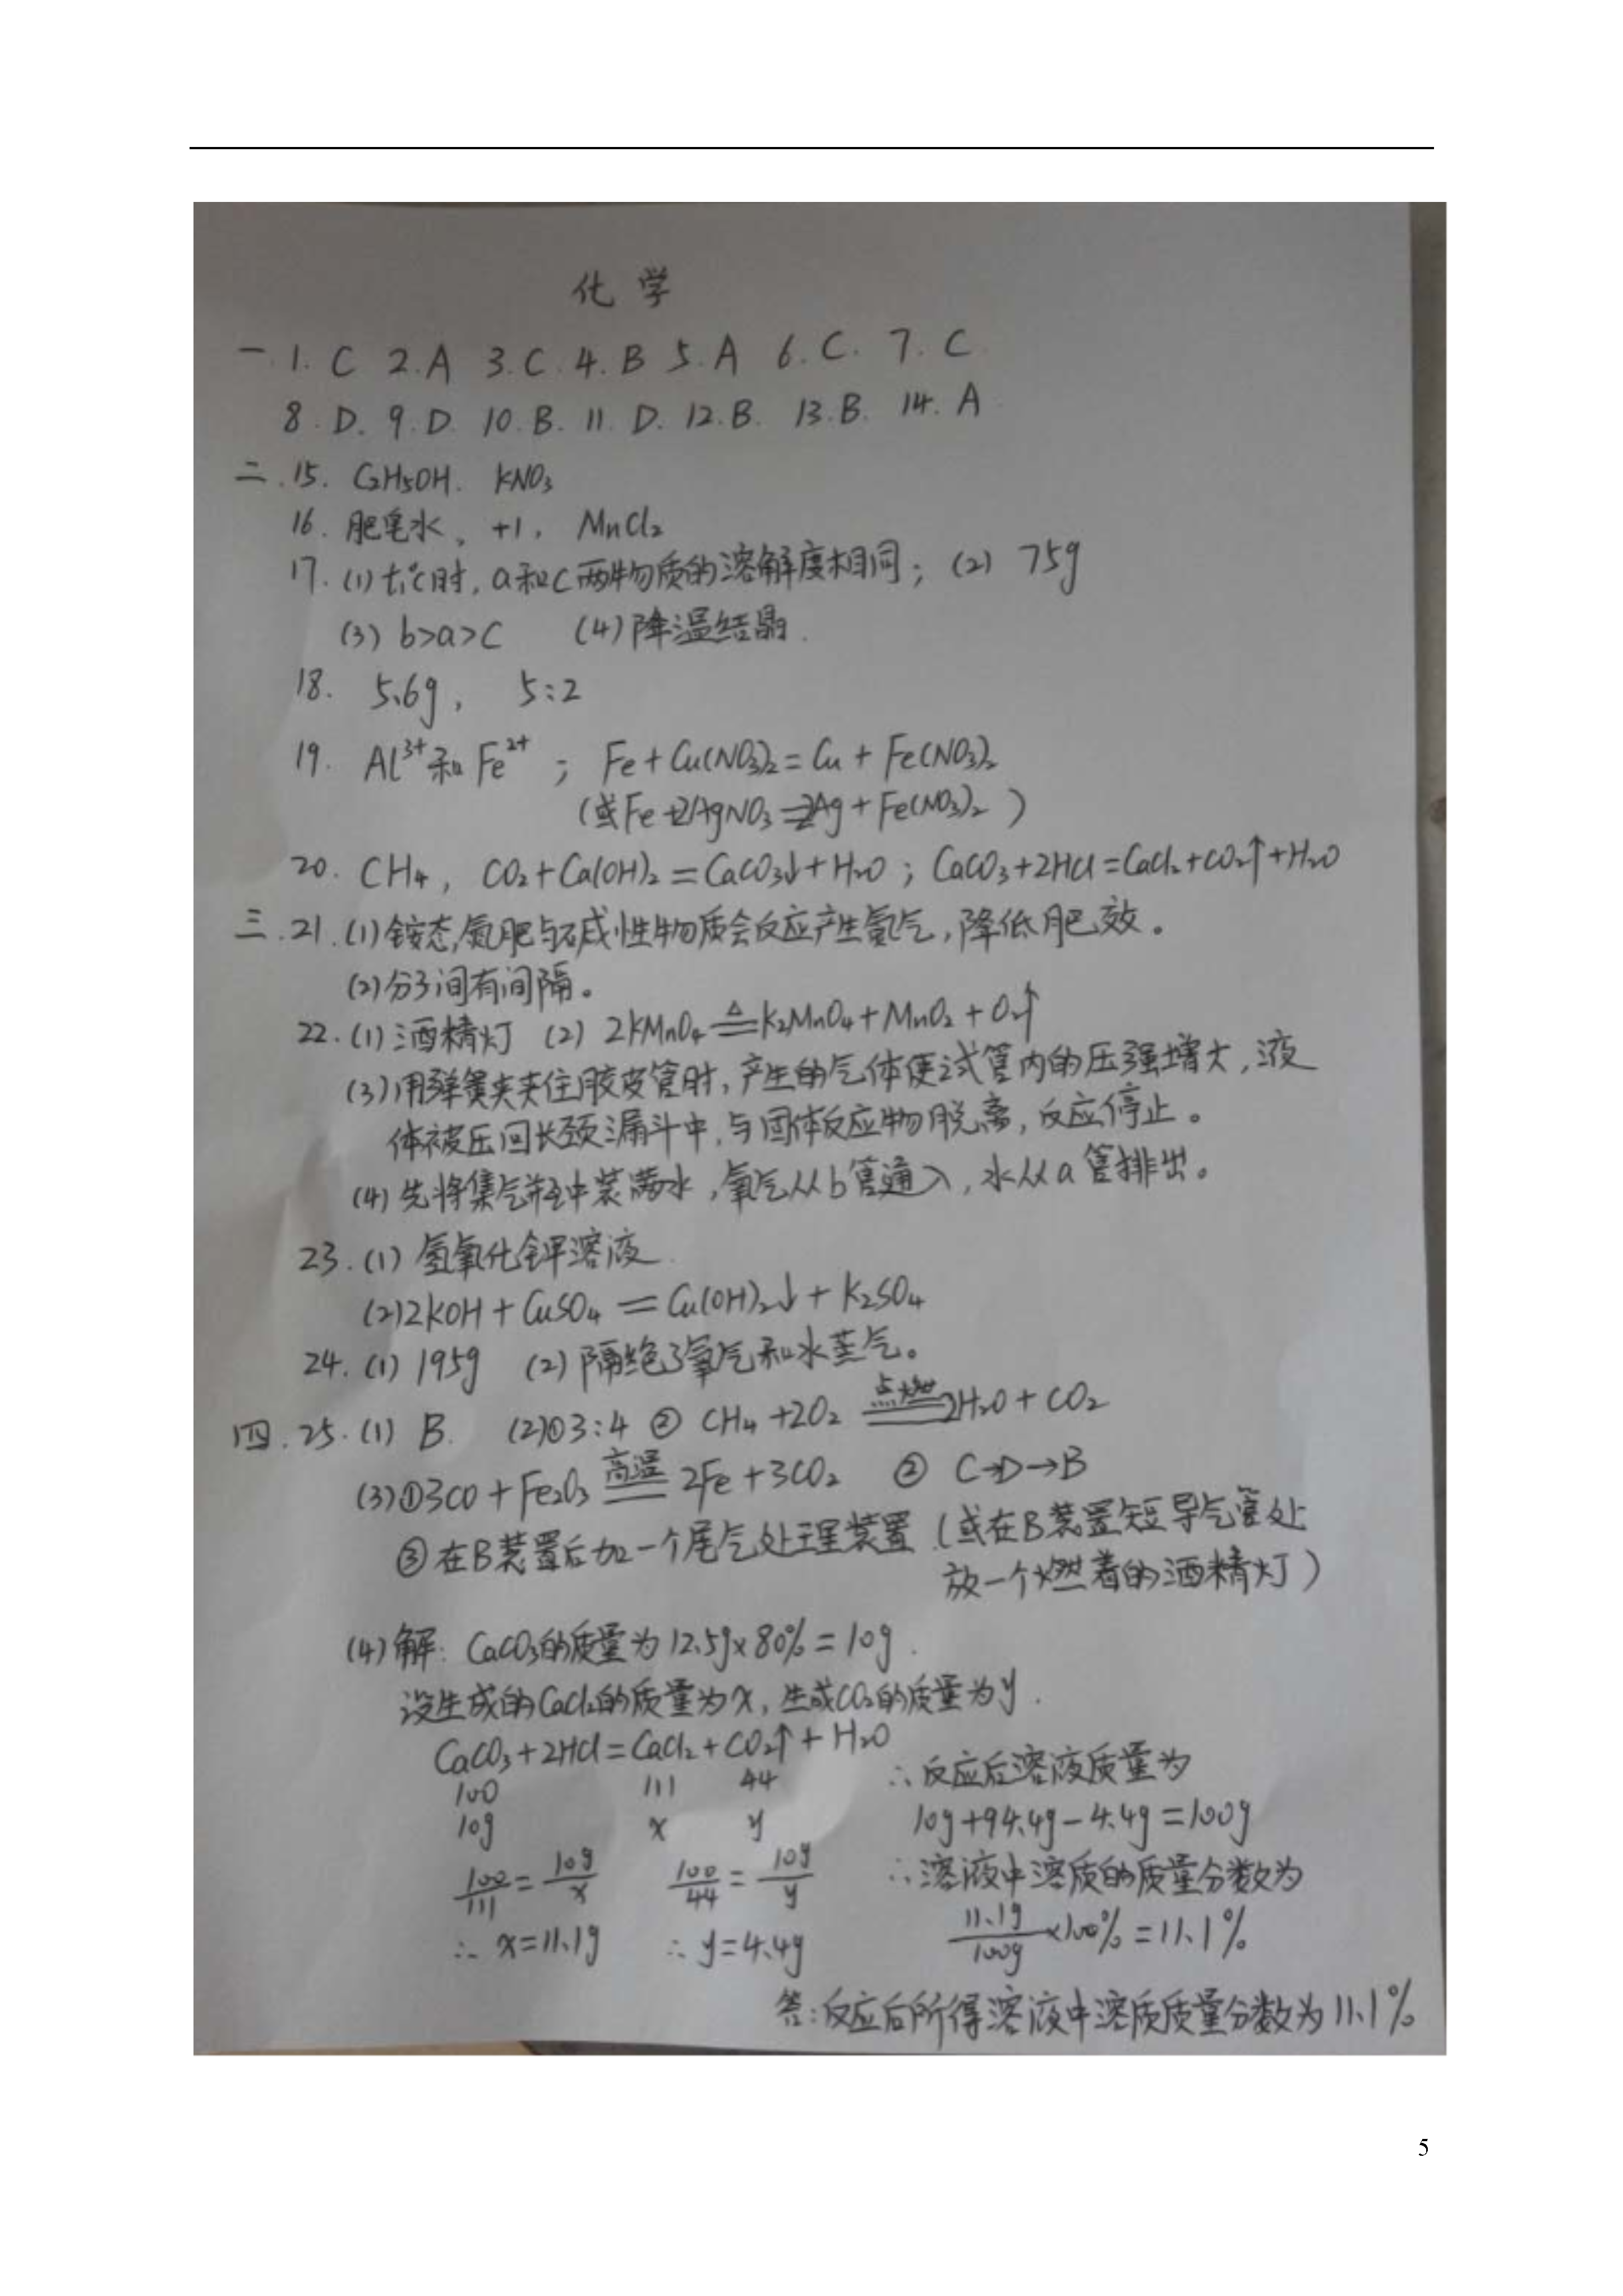 化学
一.1.C 2.A 3.C.4.B 5.A 6.C. 7.C
8.D. 9.D. 10.B. 11.D. 12.B. 13.B. 14.A
二.15. C₂H₅OH. KNO₃
16. 肥皂水、+1, MnCl₂
17.(1)t₁℃时,a和c两物质的溶解度相同;(2) 75g
(3) b>a>c (4)降温结晶.
18. 5.6g, 5:2
19. Al³⁺和Fe²⁺; Fe+Cu(NO₃)₂=Cu+Fe(NO₃)₂
(或Fe+2AgNO₃=2Ag+Fe(NO₃)₂)
20. CH₄, CO₂+Ca(OH)₂=CaCO₃↓+H₂O;CaCO₃+2HCl=CaCl₂+CO₂↑+H₂O
三.21.(1)铵态氮肥与碱性物质会反应产生氨气,降低肥效。
(2)分子间有间隔。
22.(1)酒精灯 (2) 2KMnO₄≜K₂MnO₄+MnO₂+O₂↑
(3)用弹簧夹夹住胶皮管时,产生的气体使试管内的压强增大,液
体被压回长颈漏斗中,与固体反应物脱离,反应停止。
(4)先将集气瓶中装满水,氧气从b管通入,水从a管排出。
23.(1)氢氧化钾溶液.
(2)2KOH+CuSO₄=Cu(OH)₂↓+K₂SO₄
24.(1)195g (2)隔绝了氧气和水蒸气。
四.25.(1) B. (2)①3:4 ② CH₄+2O₂ 点燃 2H₂O+CO₂
(3)①3CO+Fe₂O₃ 高温 2Fe+3CO₂ ② C→D→B
③在B装置后加一个尾气处理装置(或在B装置短导气管处
放一个燃着的酒精灯)
(4)解:CaCO₃的质量为12.5g×80%=10g.
设生成的CaCl₂的质量为x,生成CO₂的质量为y.
CaCO₃+2HCl=CaCl₂+CO₂↑+H₂O
100 111 44
10g x y
100/111=10g/x 100/44=10g/y
∴x=11.1g ∴y=4.4g
∴反应后溶液质量为
10g+94.4g-4.4g=100g
∴溶液中溶质的质量分数为
11.1g/100g×100%=11.1%
答:反应后所得溶液中溶质质量分数为11.1%
5